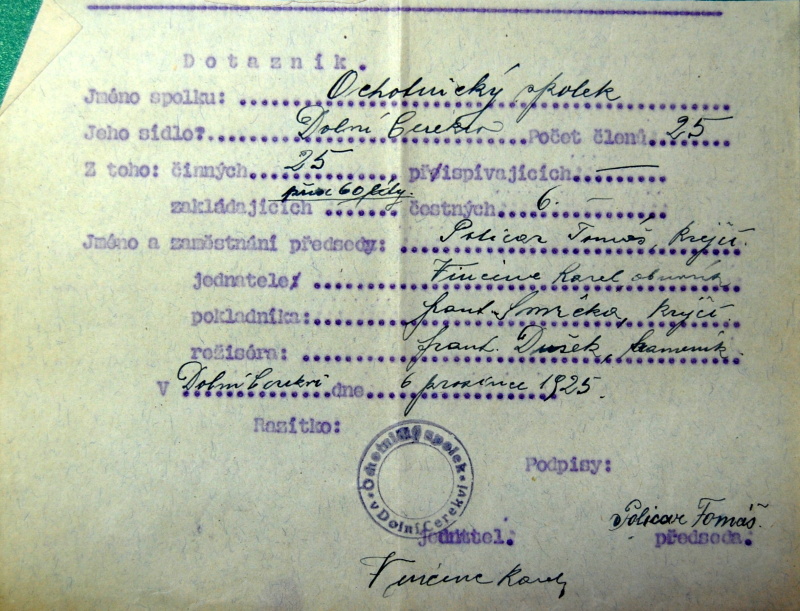 Dotazník.
Jméno spolku: Ochotnický spolek
Jeho sídlo? Dolní Cerekev Počet členů 25
Z toho: činných 25 př/ispívajících —
zakládajících čestných 6. —
Jméno a zaměstnání předsedy: Policar Tomáš, krejčí.
jednatele/ Vincenc Karel obuvník
pokladníka: frant. Smrčka, krejčí.
režiséra: frant. Dušek, kameník.
V Dolní Cerekvi dne 6 prosince 1925.
Razítko:
Ochotnický spolek
v Dolní Cerekvi
Podpisy:
Policar Tomáš.
jednatel. předseda.
Vincenc Karel